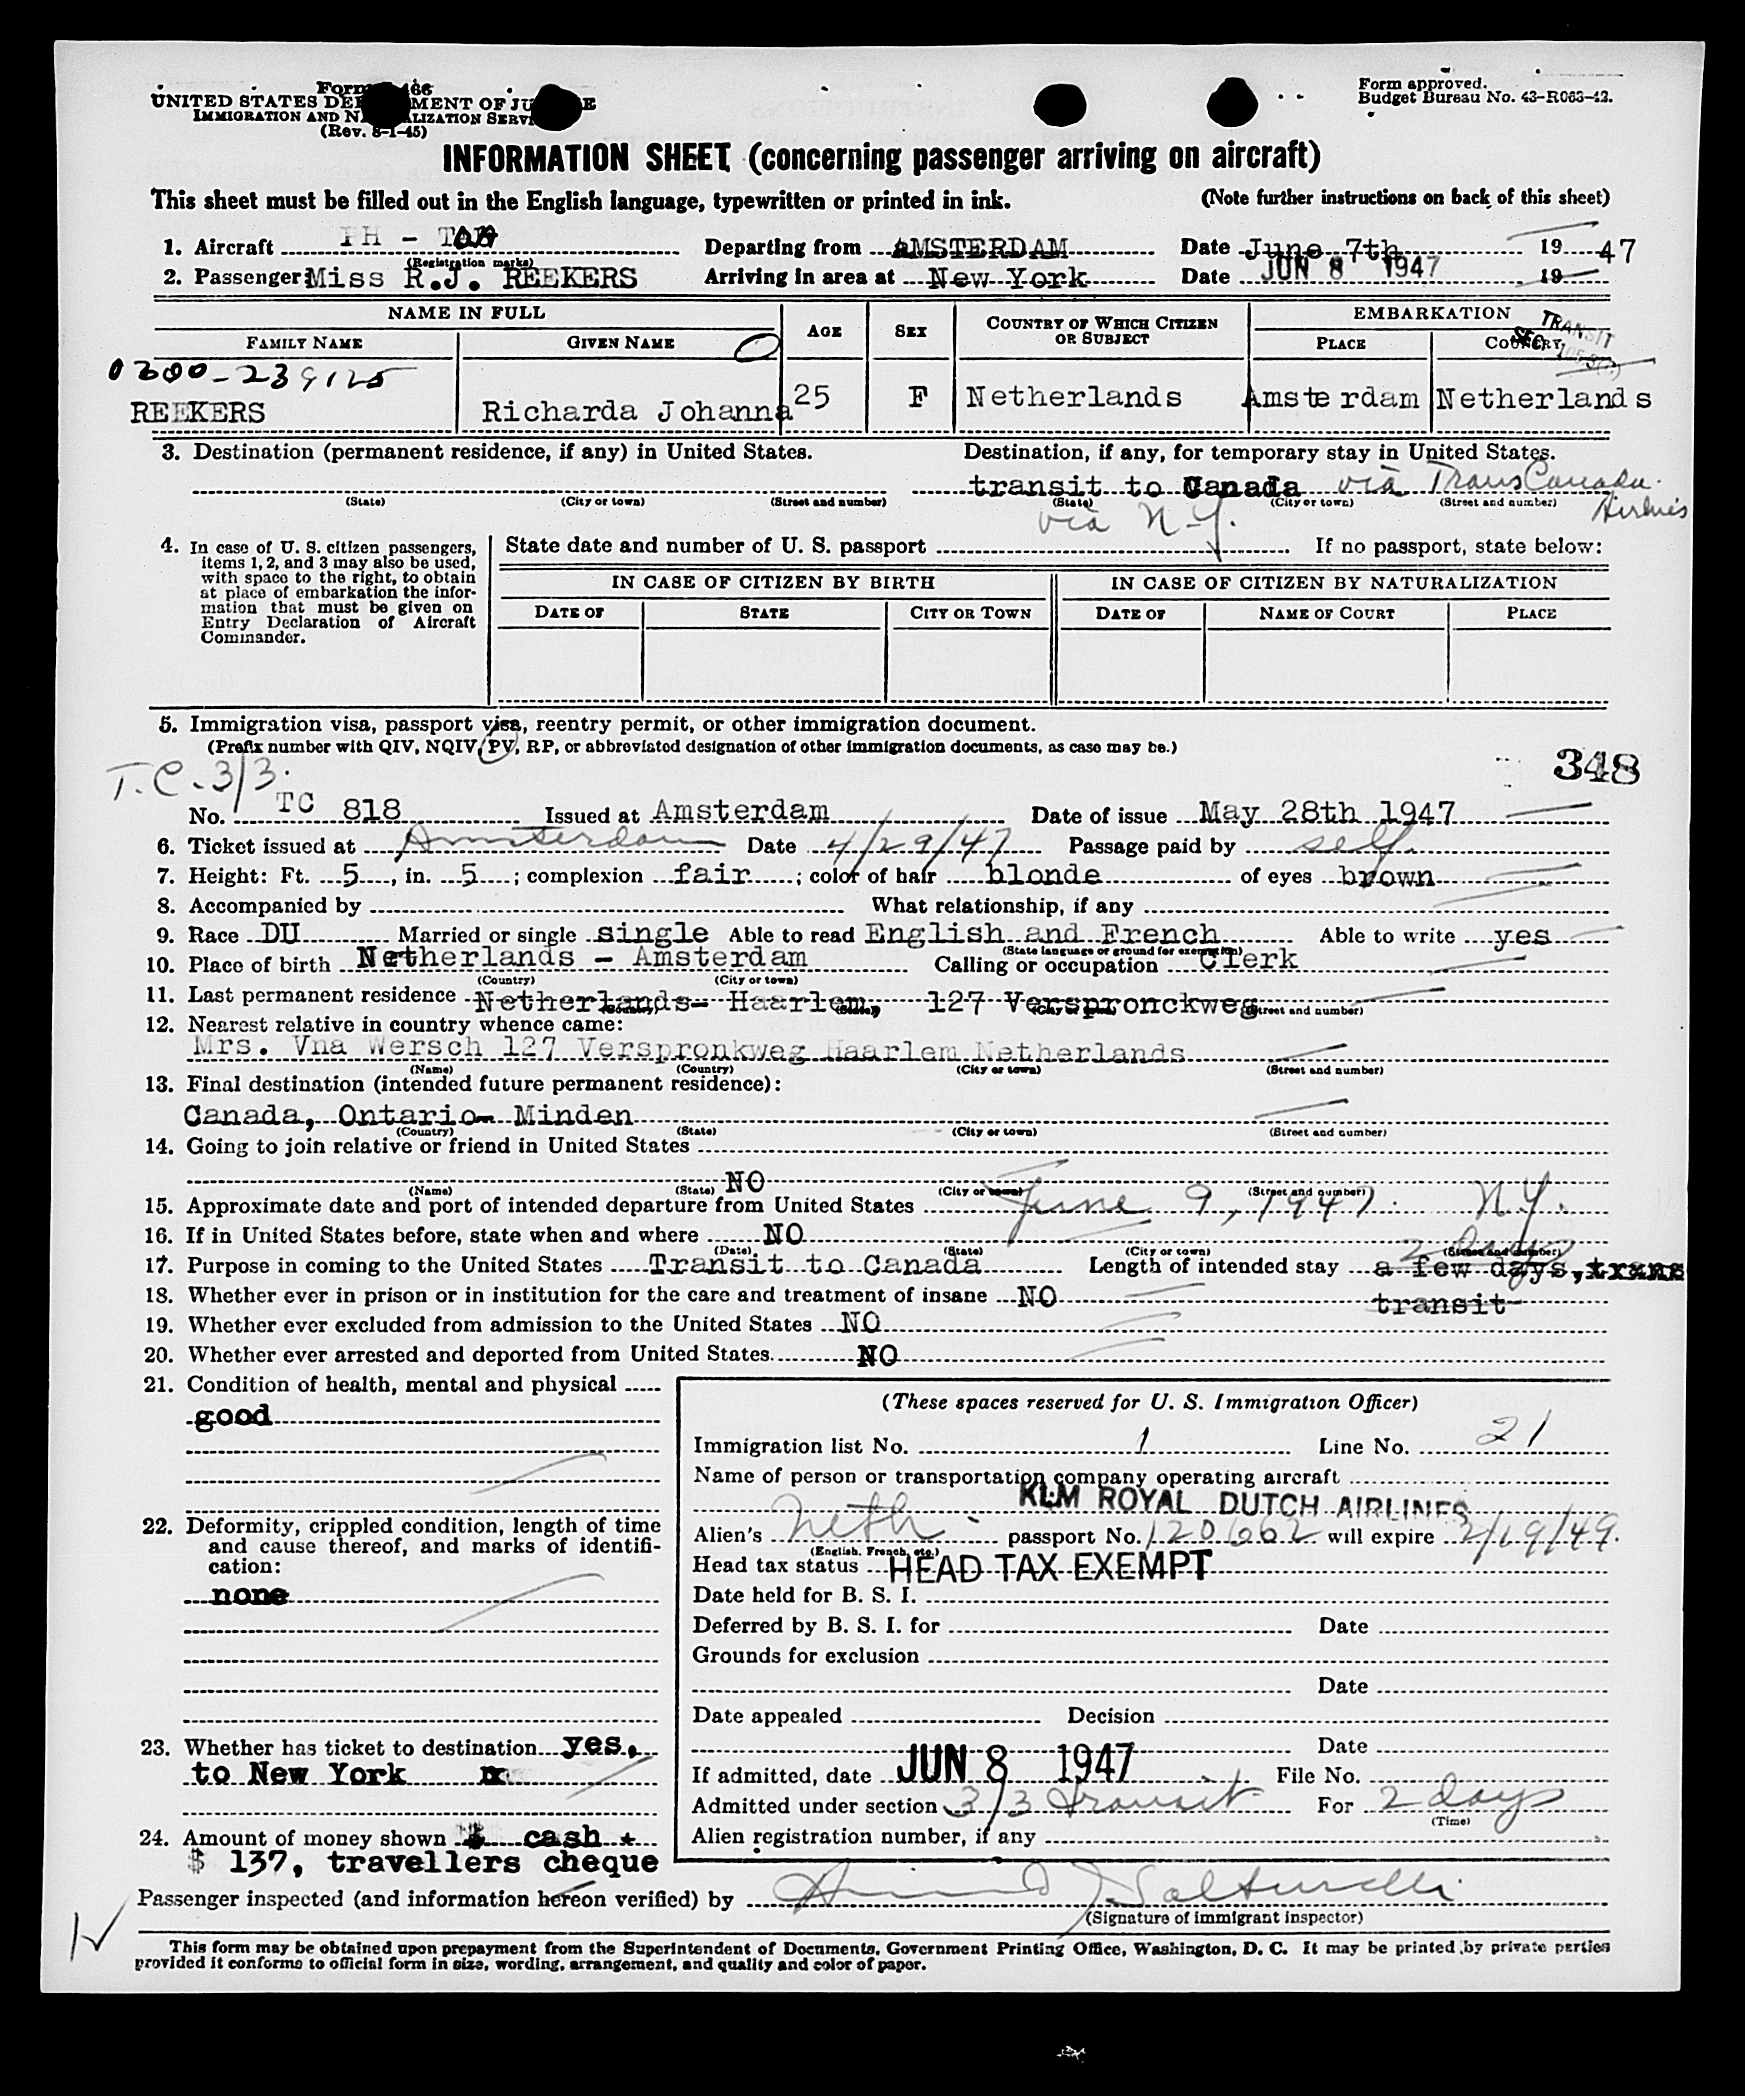 Form 466
UNITED STATES DEPARTMENT OF JUSTICE
IMMIGRATION AND NATURALIZATION SERVICE
(Rev. 8-1-45)
Form approved.
Budget Bureau No. 43-R063-42.
INFORMATION SHEET (concerning passenger arriving on aircraft)
This sheet must be filled out in the English language, typewritten or printed in ink. (Note further instructions on back of this sheet)
1. Aircraft PH - Departing from AMSTERDAM Date June 7th 19 47
(Registration marks)
2. Passenger: Miss R.J. REEKERS Arriving in area at New York Date JUN 8 1947 19
NAME IN FULL AGE SEX COUNTRY OF WHICH CITIZEN OR SUBJECT EMBARKATION
FAMILY NAME GIVEN NAME PLACE COUNTRY
TRANSIT
SEC.
0300-239125
REEKERS Richarda Johanna 25 F Netherlands Amsterdam Netherlands
3. Destination (permanent residence, if any) in United States. Destination, if any, for temporary stay in United States.
transit to Canada via Trans Canada Airlines
(State) (City or town) (Street and number) (State) (City or town) (Street and number)
via N-Y.
4. In case of U. S. citizen passengers, items 1, 2, and 3 may also be used, with space to the right, to obtain at place of embarkation the information that must be given on Entry Declaration of Aircraft Commander.
State date and number of U. S. passport If no passport, state below:
IN CASE OF CITIZEN BY BIRTH IN CASE OF CITIZEN BY NATURALIZATION
DATE OF STATE CITY OR TOWN DATE OF NAME OF COURT PLACE
5. Immigration visa, passport visa, reentry permit, or other immigration document.
(Prefix number with QIV, NQIV, PV, RP, or abbreviated designation of other immigration documents, as case may be.)
348
T.C. 3/3.
No. TC 818 Issued at Amsterdam Date of issue May 28th 1947
6. Ticket issued at Amsterdam Date 4/29/47 Passage paid by self
7. Height: Ft. 5, in. 5; complexion fair; color of hair blonde of eyes brown
8. Accompanied by What relationship, if any
9. Race DU Married or single single Able to read English and French Able to write yes
(State language or ground for exemption)
10. Place of birth Netherlands - Amsterdam Calling or occupation Clerk
(Country) (City or town)
11. Last permanent residence Netherlands- Haarlem, 127 Verspronckweg
(Country) (State) (City or town) (Street and number)
12. Nearest relative in country whence came:
Mrs. Vna Wersch 127 Verspronkweg Haarlem Netherlands
(Name) (Country) (City or town) (Street and number)
13. Final destination (intended future permanent residence):
Canada, Ontario- Minden
(Country) (State) (City or town) (Street and number)
14. Going to join relative or friend in United States
NO
(Name) (State) (City or town) (Street and number)
15. Approximate date and port of intended departure from United States June 9, 1947. N.Y.
16. If in United States before, state when and where NO
(Date) (State) (City or town) (Street and number)
2 days
17. Purpose in coming to the United States Transit to Canada Length of intended stay a few days, trans
transit
18. Whether ever in prison or in institution for the care and treatment of insane NO
19. Whether ever excluded from admission to the United States NO
20. Whether ever arrested and deported from United States NO
21. Condition of health, mental and physical
good
22. Deformity, crippled condition, length of time and cause thereof, and marks of identification:
none
23. Whether has ticket to destination yes,
to New York
24. Amount of money shown $ cash +
$ 137, travellers cheque
(These spaces reserved for U. S. Immigration Officer)
Immigration list No. 1 Line No. 21
Name of person or transportation company operating aircraft
KLM ROYAL DUTCH AIRLINES
Alien's Neth. passport No. 120662 will expire 2/19/49.
(English, French, etc.)
Head tax status HEAD TAX EXEMPT
Date held for B. S. I.
Deferred by B. S. I. for Date
Grounds for exclusion
Date
Date appealed Decision
Date
If admitted, date JUN 8 1947 File No.
Admitted under section 3/3 transit For 2 days
(Time)
Alien registration number, if any
Passenger inspected (and information hereon verified) by
(Signature of immigrant inspector)
This form may be obtained upon prepayment from the Superintendent of Documents, Government Printing Office, Washington, D. C. It may be printed by private parties
provided it conforms to official form in size, wording, arrangement, and quality and color of paper.